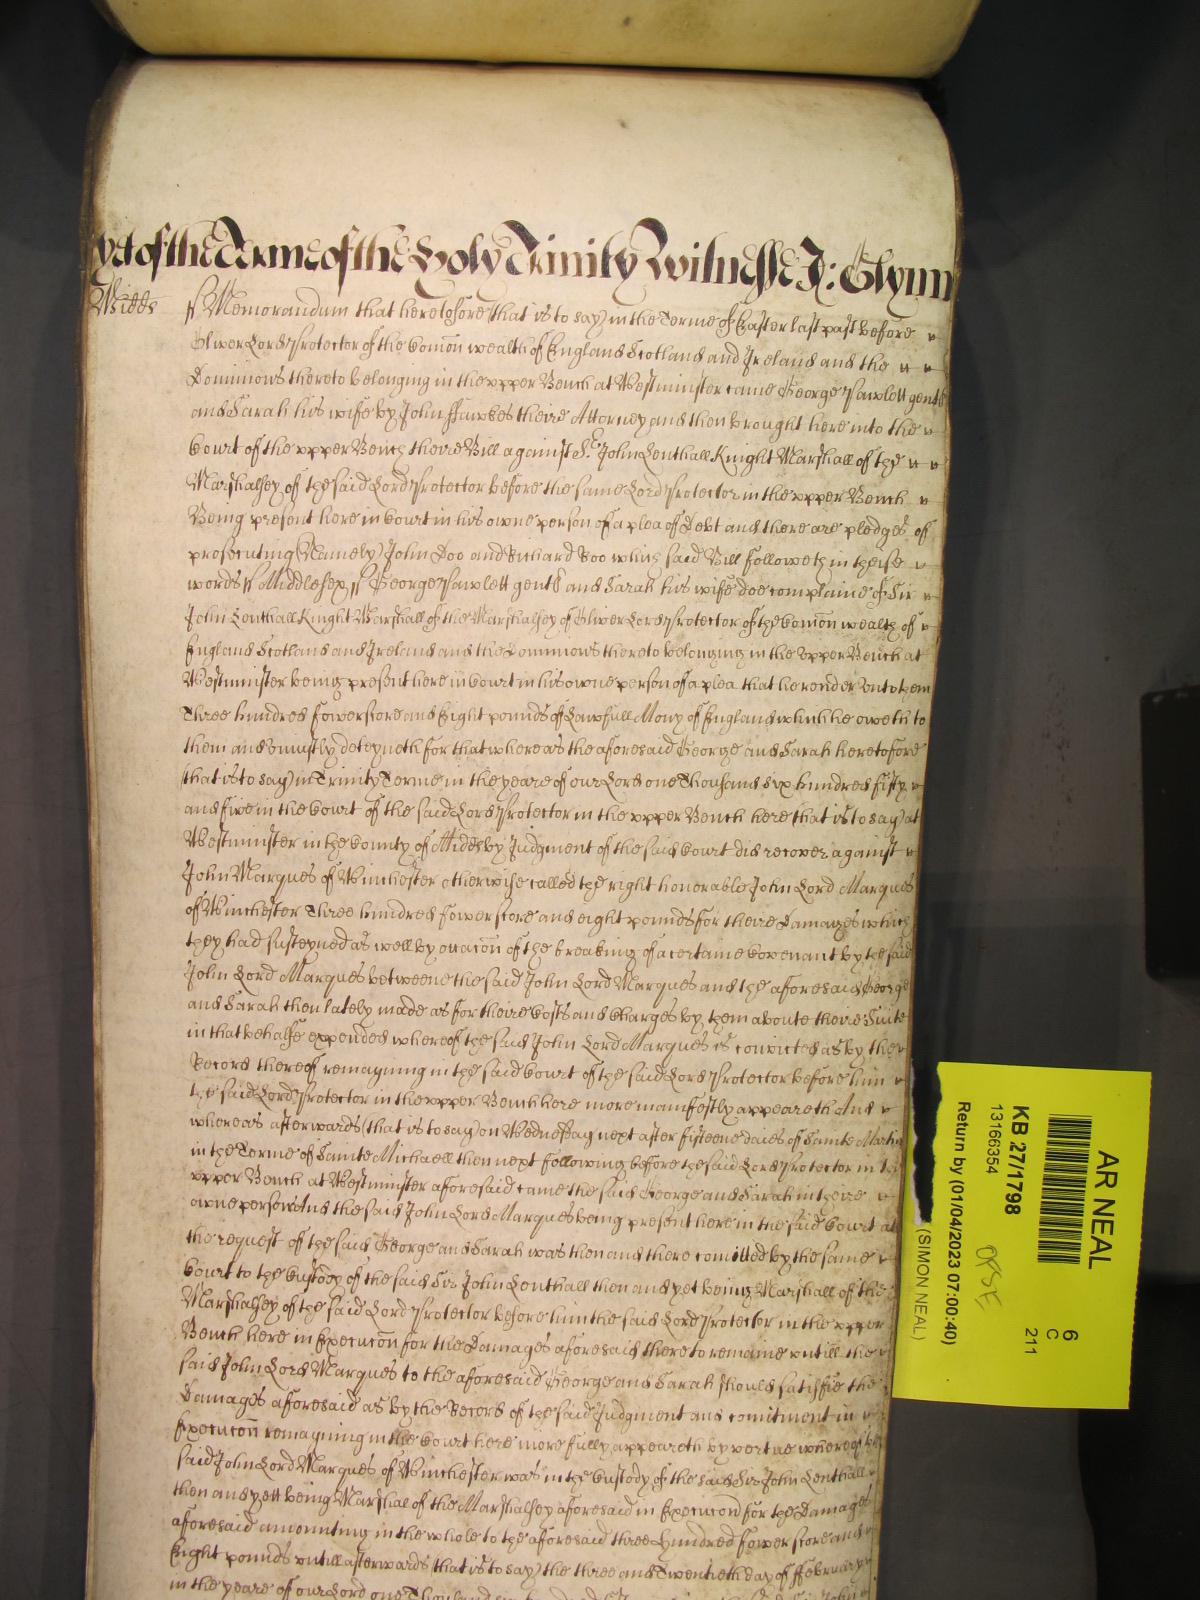 yet of the Terme of the Holy Trinity Witnesse J: Glynn
Midds
ss Memorandum that heretofore (that is to say) in the Terme of Easter last past before
Oliver Lord Protector of the Comon wealth of England Scotland and Ireland and the
Dominions thereto belonging in the upper Bench at Westminster came George Pawlett gent
and Sarah his wife by John Hawkes theire Attorney and then brought here into the
Court of the upper Bench theire Bill against Sr John Lenthall Knight Marshall of the
Marshalsey of the said Lord Protector before the same Lord Protector in the upper Bench
Being present here in Court in his owne person of a plea of Debt and there are pledges of
prosecuting (Namely) John Doo and Richard Roo which said Bill followeth in theise
words ss Middlesex ss George Pawlett gent and Sarah his wife doe complaine of Sir
John Lenthall Knight Marshall of the Marshalsey of Oliver Lord Protector of the Comon wealth of
England Scotland and Ireland and the Dominions thereto belonging in the upper Bench at
Westminster being present here in Court in his owne person of a plea that he render unto them
Three hundred fower score and Eight pounds of Lawfull Mony of England which he oweth to
them and uniustly deteyneth for that whereas the aforesaid George and Sarah heretofore
(that is to say) in Trinity Terme in the yeare of our Lord one Thousand six hundred fifty
and five in the Court of the said Lord Protector in the upper Bench here (that is to say) at
Westminster in the County of Midds by Judgment of the said Court did recover against
John Marques of Winchester otherwise called the right honorable John Lord Marques
of Winchester Three hundred fower score and eight pounds for theire Damages which
they had susteyned as well by occacon of the breaking of a certaine Covenant by the said
John Lord Marques betweene the said John Lord Marques and the aforesaid George
and Sarah then lately made as for theire Costs and Charges by them aboute theire Suite
in that behalfe expended whereof the said John Lord Marques is convicted as by the
Record thereof remayning in the said Court of the said Lord Protector before him
the said Lord Protector in the upper Bench here more manifestly appeareth And
whereas afterwards (that is to say) on Wednesday next after fifteene daies of Sainte Martin
in the Terme of Sainte Michaell then next following before the said Lord Protector in the
upper Bench at Westminster aforesaid came the said George and Sarah in theire
owne persons And the said John Lord Marques being present here in the said Court at
the request of the said George and Sarah was then and there comitted by the same
Court to the Custody of the said Sir John Lenthall then and yet being Marshall of the
Marshalsey of the said Lord Protector before him the said Lord Protector in the upper
Bench here in Execucon for the Damages aforesaid there to remaine untill the
said John Lord Marques to the aforesaid George and Sarah should satisfie the
Damages aforesaid as by the Record of the said Judgment and comitment in
Execucon remayning in the Court here more fully appeareth by vertue whereof the
said John Lord Marques of Winchester was in the Custody of the said Sir John Lenthall
then and yett being Marshal of the Marshalsey aforesaid in Execucon for the Damages
aforesaid amounting in the whole to the aforesaid three Hundred fower score and
Eight pounds untill afterwards (that is to say) the three and Twentieth day of February
in the yeare of our Lord one Thousand
AR NEAL
KB 27/1798
13166354
Return by (01/04/2023 07:00:40)
(SIMON NEAL)
6
C
211